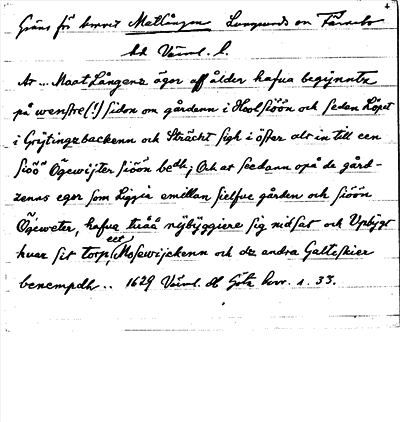 Gräns för brevet Matlången Långserud sn Färnebo
hd Värml. l.
At ... Maat Långenz äger aff ålder hafua begijnntz
på wenstre (!) sidon om gårdenn i Hoolsiöön och sedan Löpet
i Gryttingzbackenn och Sträckt sigh i öster alt in till een
siöö Ögewijster siöön bedh; Och at seedann opå de gård-
zenas egor som Liggia emillan sielfue gården och siöön
Ögeweter, hafue tuåå nijbyggiere sig nidsat och Upbÿgt
huar sit torp, eet Mosewijckenn och dz andra Galteskier
benempdh .. 1629 Värml. db Göta hovr. 1. 33.